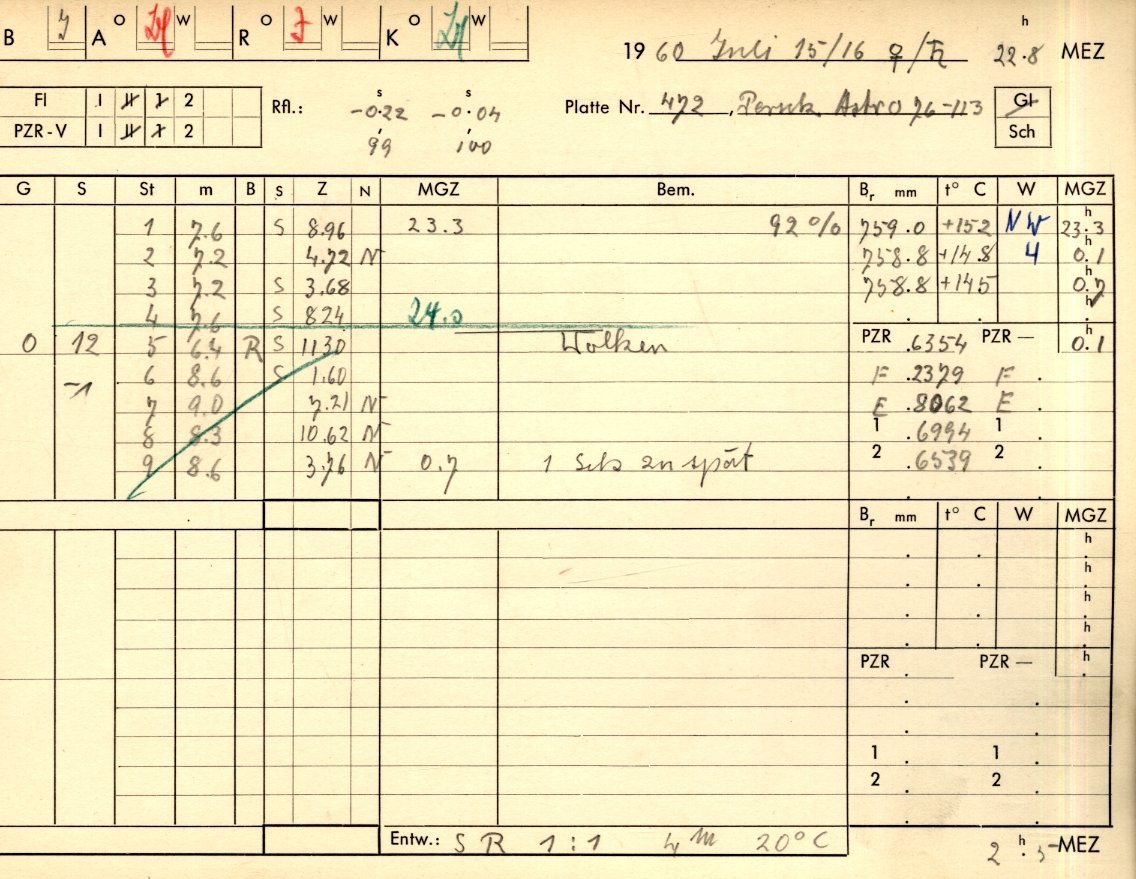 B A O W R O W K O W
19 60 Juli 15/16 ♀/♄ 22.8 h MEZ
Fl 1 11 1 2
PZR-V 1 11 1 2
Rfl.: -0.22 s -0.04 s
99 100
Platte Nr. 472, Astro 76-113
Gl
Sch
G S St m B S Z N MGZ Bem. Br mm t° C W MGZ
1 7.6 S 8.96 23.3 92 % 759.0 +15.2 NW 23.3 h
2 7.2 4.72 N 758.8 +14.8 4 0.1 h
3 7.2 S 3.68 758.8 +14.5 0.7 h
4 7.6 S 8.24 24.0 h
0 12 5 6.4 B R S 11.30 Wolken PZR .6354 PZR — 0.1 h
-1 6 8.6 S 1.60 F .2379 F
7 9.0 7.21 N E .8062 E
8 8.3 10.62 N 1 .6994 1
9 8.6 3.76 N 0.7 1 Sek zu spät 2 .6539 2
Br mm t° C W MGZ
h
h
h
h
PZR PZR — h
1 1
2 2
Entw.: S R 1:1 4 m 20° C 2.5 h MEZ